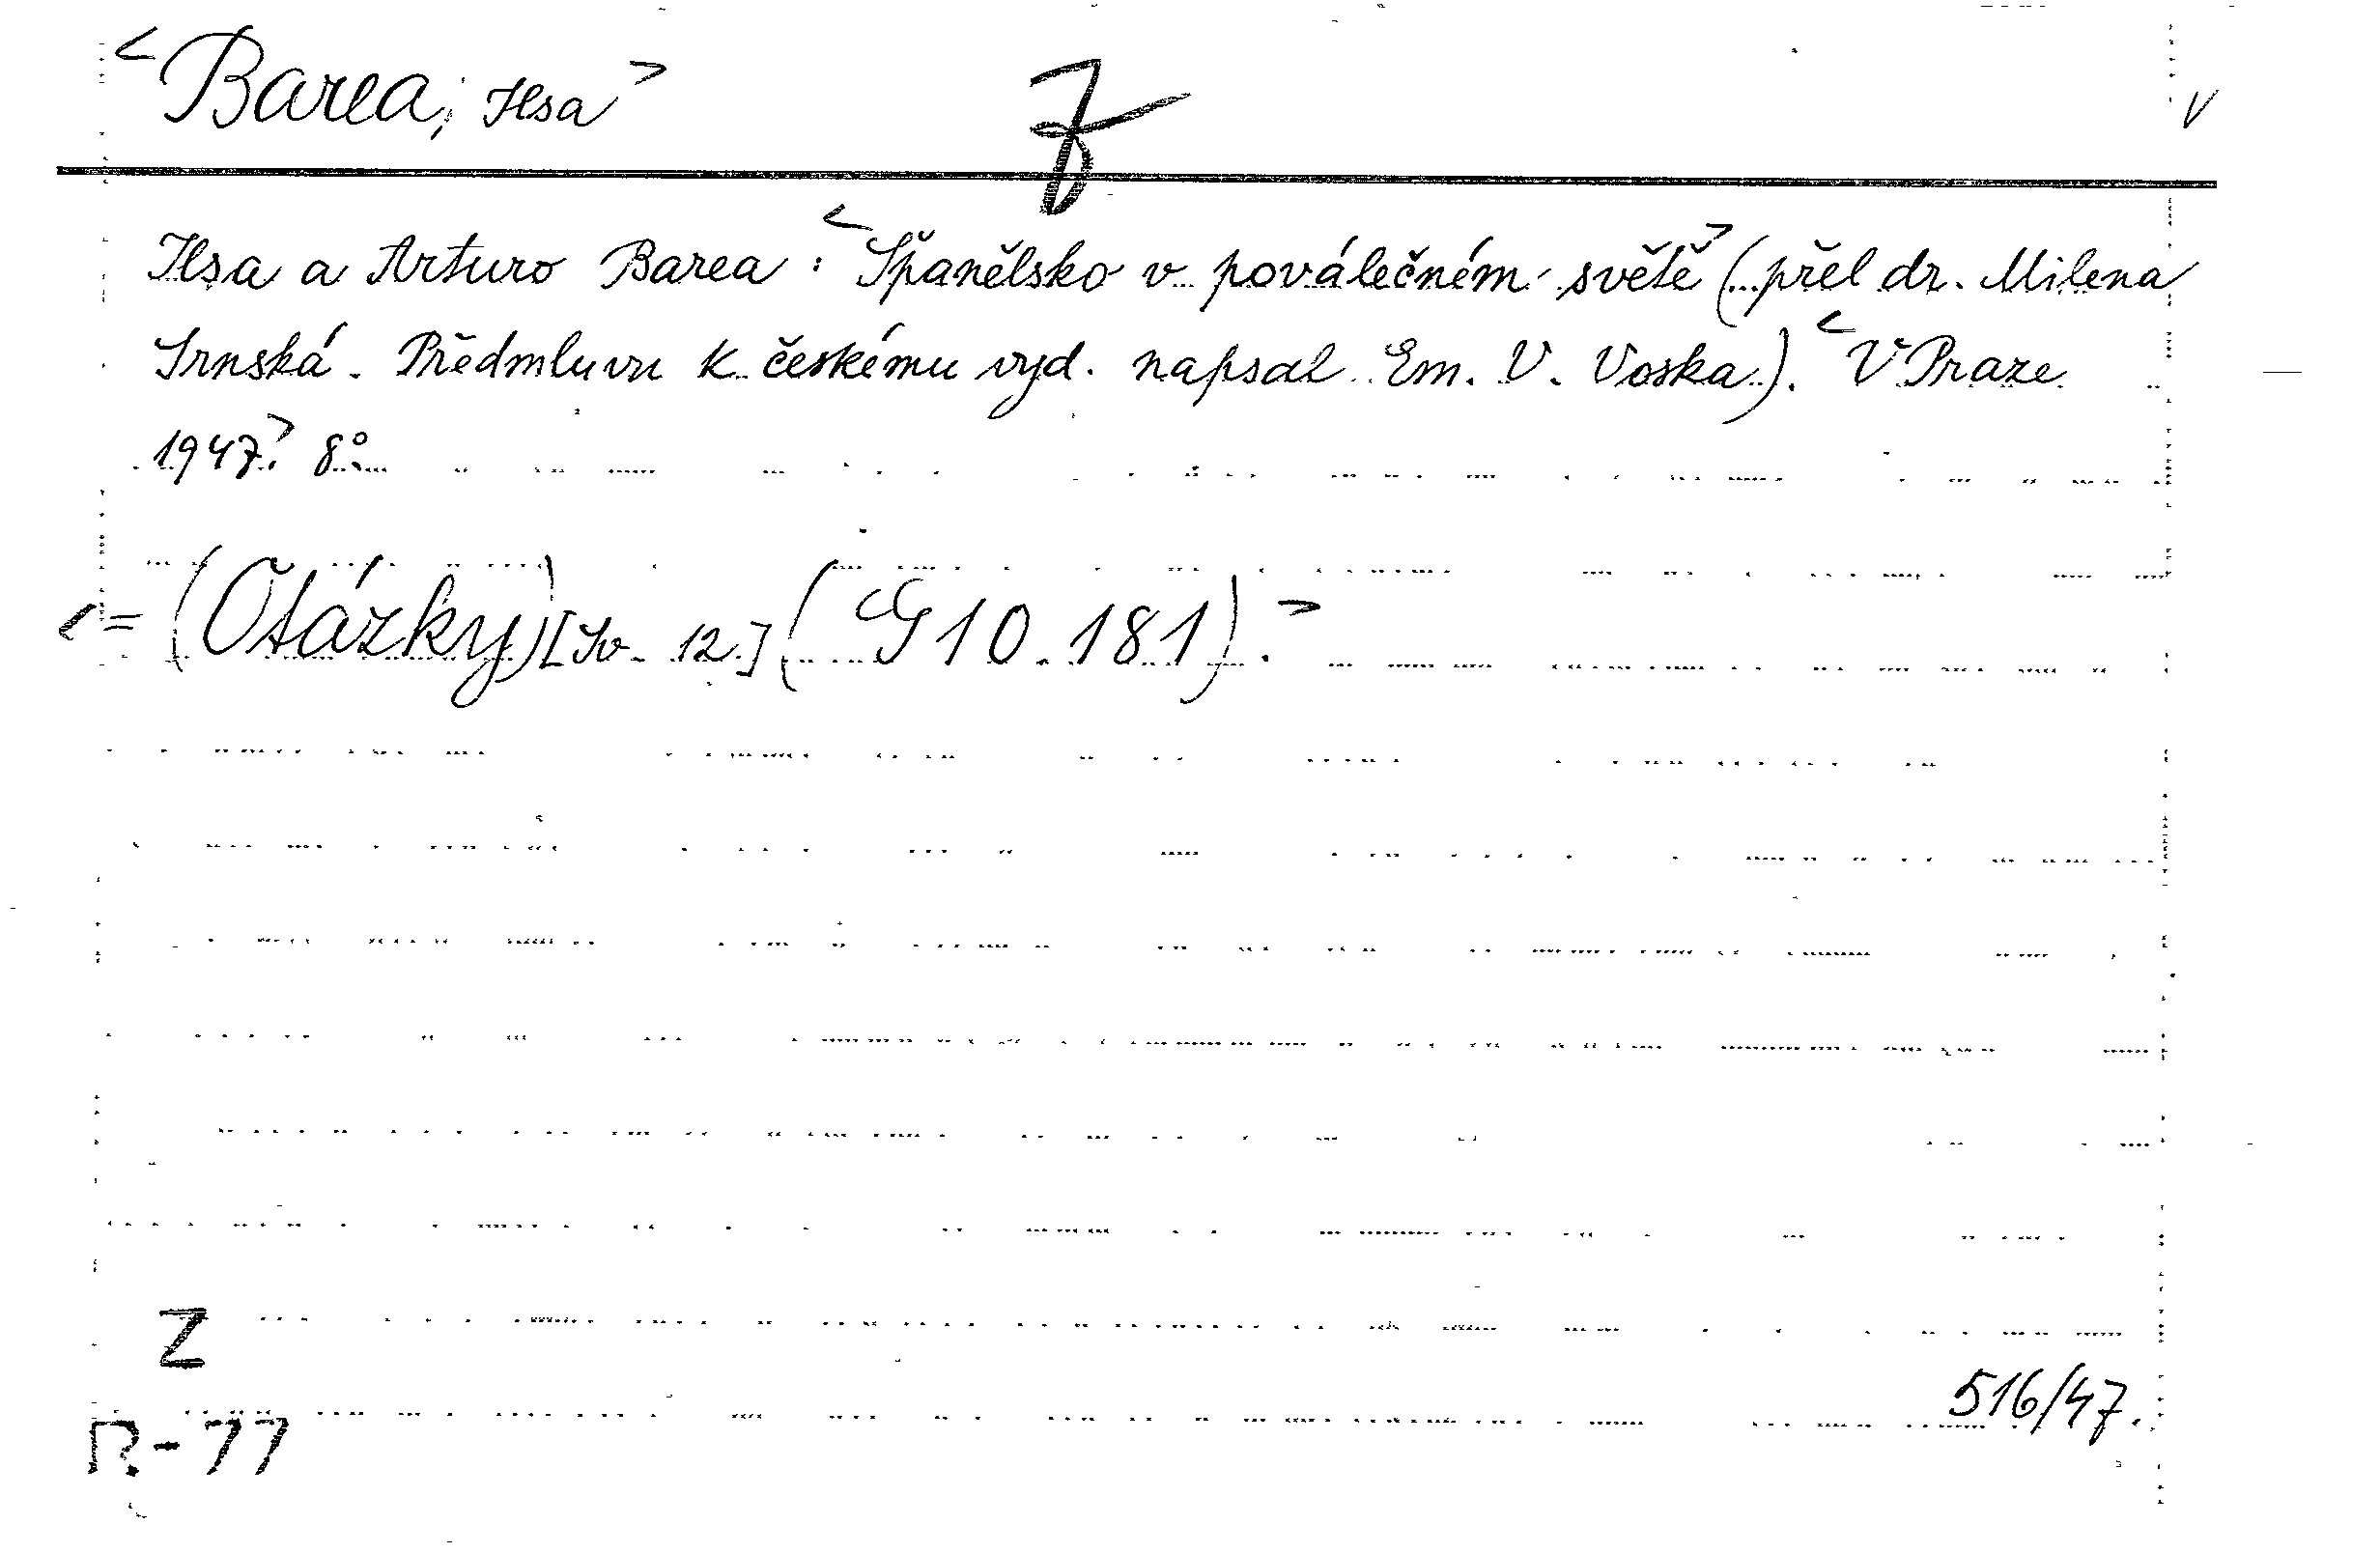 <Barea, Ilsa>
V
Ilsa a Arturo Barea: <Španělsko v poválečném světě> (přel dr. Milena
Srnská. Předmluvu k českému vyd. napsal Em. V. Voska). <V Praze
1947.> 8°.
<= (Otázky) [Sv. 12.] (G 10.181).>
Z
516/47.
R-77